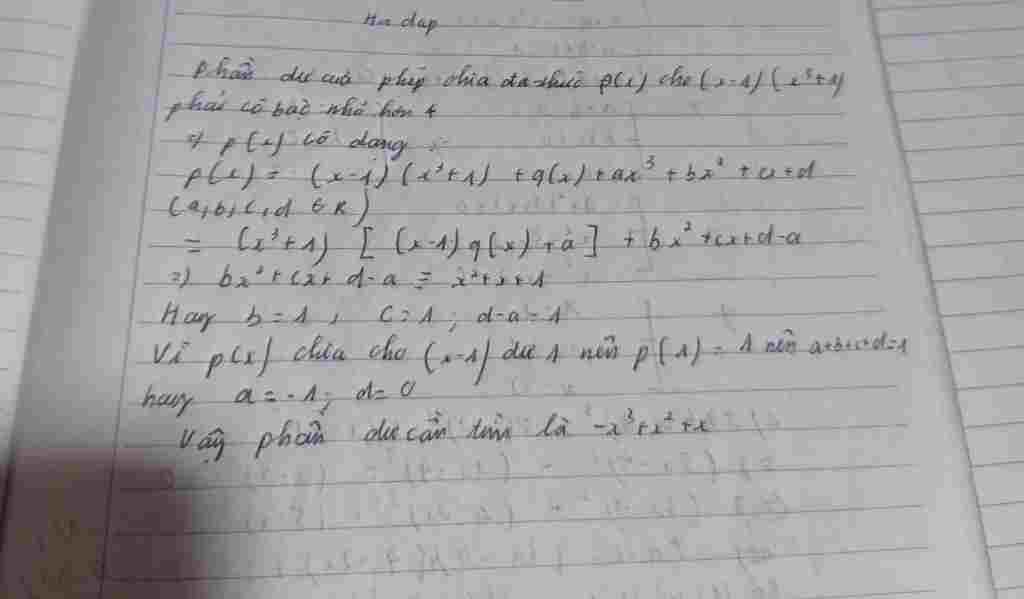 dap
Phần dư của phép chia đa thức p(x) cho (x-1)(x³+1)
phải có bậc nhỏ hơn 4
=> p(x) có dạng :
p(x) = (x-1)(x³+1) + q(x) + ax³ + bx² + cx + d
(a, b, c, d ∈ R)
= (x³+1) [(x-1) q(x) + a] + bx² + cx + d - a
=> bx² + cx + d - a = x² + x + 1
Hay b = 1 ; c = 1 ; d-a = 1
Vì p(x) chia cho (x-1) dư 1 nên p(1) = 1 nên a+b+c+d=1
hay a = -1; d = 0
Vậy phần dư cần tìm là -x³+x²+x